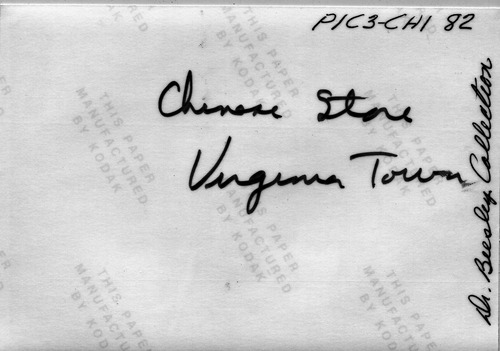 PIC3-CHI 82
Chinese Store
Virginia Town
Dr. Beesley Collection
THIS PAPER
MANUFACTURED
BY KODAK
THIS PAPER
MANUFACTURED
BY KODAK
THIS PAPER
MANUFACTURED
BY KODAK
THIS PAPER
MANUFACTURED
BY KODAK
THIS PAPER
MANUFACTURED
BY KODAK